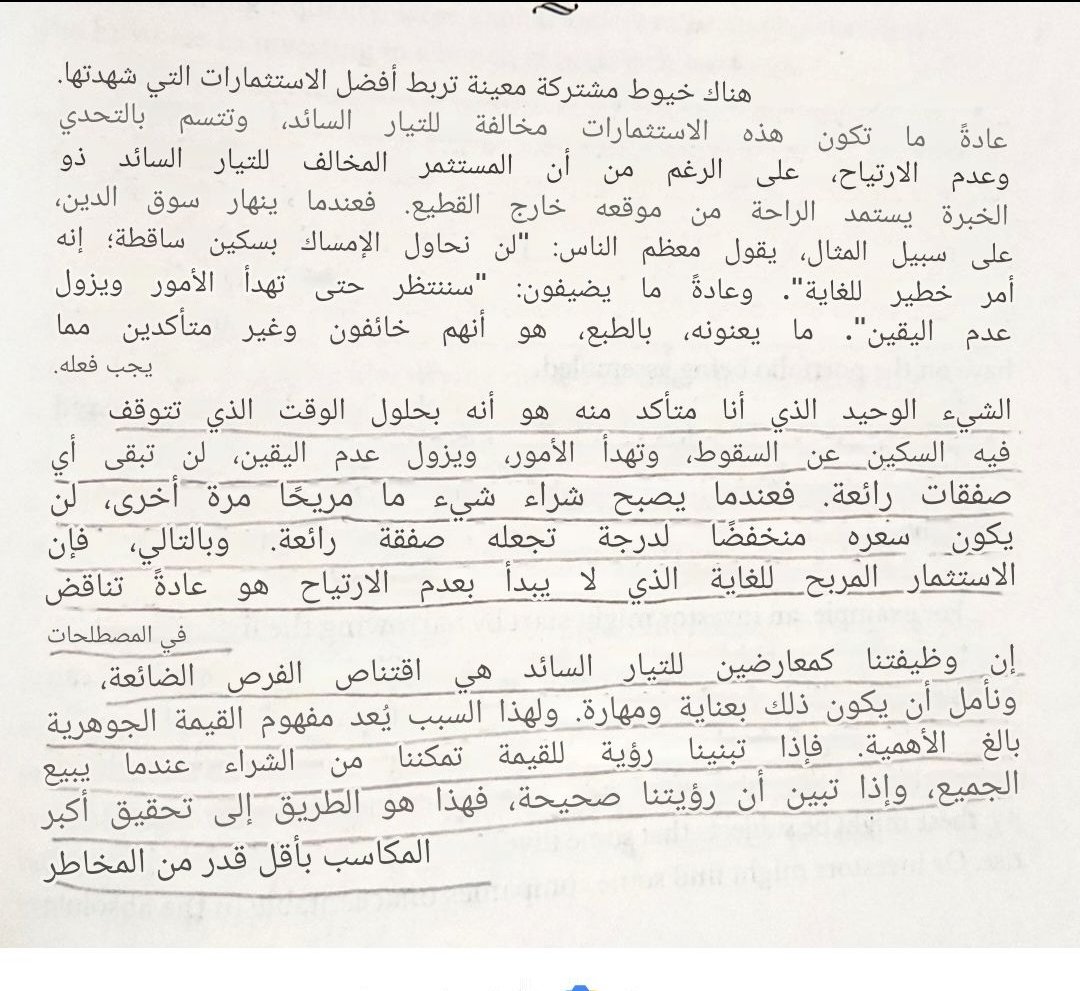 هناك خيوط مشتركة معينة تربط أفضل الاستثمارات التي شهدتها.
عادةً ما تكون هذه الاستثمارات مخالفة للتيار السائد، وتتسم بالتحدي
وعدم الارتياح، على الرغم من أن المستثمر المخالف للتيار السائد ذو
الخبرة يستمد الراحة من موقعه خارج القطيع. فعندما ينهار سوق الدين،
على سبيل المثال، يقول معظم الناس: "لن نحاول الإمساك بسكين ساقطة؛ إنه
أمر خطير للغاية". وعادةً ما يضيفون: "سننتظر حتى تهدأ الأمور ويزول
عدم اليقين". ما يعنونه، بالطبع، هو أنهم خائفون وغير متأكدين مما
يجب فعله.
الشيء الوحيد الذي أنا متأكد منه هو أنه بحلول الوقت الذي تتوقف
فيه السكين عن السقوط، وتهدأ الأمور، ويزول عدم اليقين، لن تبقى أي
صفقات رائعة. فعندما يصبح شراء شيء ما مريحًا مرة أخرى، لن
يكون سعره منخفضًا لدرجة تجعله صفقة رائعة. وبالتالي، فإن
الاستثمار المربح للغاية الذي لا يبدأ بعدم الارتياح هو عادةً تناقض
في المصطلحات
إن وظيفتنا كمعارضين للتيار السائد هي اقتناص الفرص الضائعة،
ونأمل أن يكون ذلك بعناية ومهارة. ولهذا السبب يُعد مفهوم القيمة الجوهرية
بالغ الأهمية. فإذا تبنينا رؤية للقيمة تمكننا من الشراء عندما يبيع
الجميع، وإذا تبين أن رؤيتنا صحيحة، فهذا هو الطريق إلى تحقيق أكبر
المكاسب بأقل قدر من المخاطر